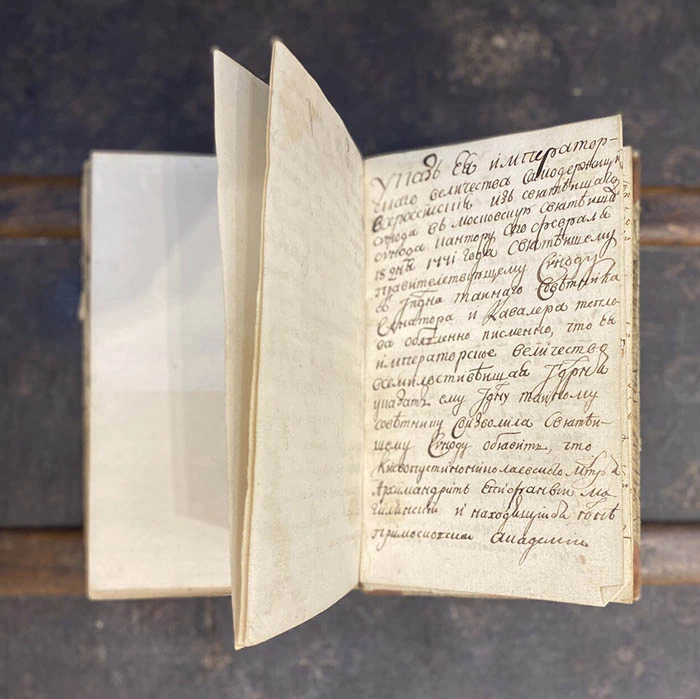 Указъ Ея император-
скаго величества Самодержицы
Всероссійскія изъ святѣйшаго
сѵнода въ московскую святѣйшаго
сѵнода кантору сего февраля
18 дня 1741 года святѣйшему
правителствующему Сѵноду
в тайнаго Совѣтника
Сенатора и Кавалера
объявлено писменно, что ея
императорское величество
всемилостивѣйшая Гдрня
указать ему тайному
совѣтнику Соизволила Святѣй-
шему Сѵноду объявить, что
Киевопустынониколаевского мнтря
Архимандритъ Епифаній
и находящійся нынѣ
при московской Академіи